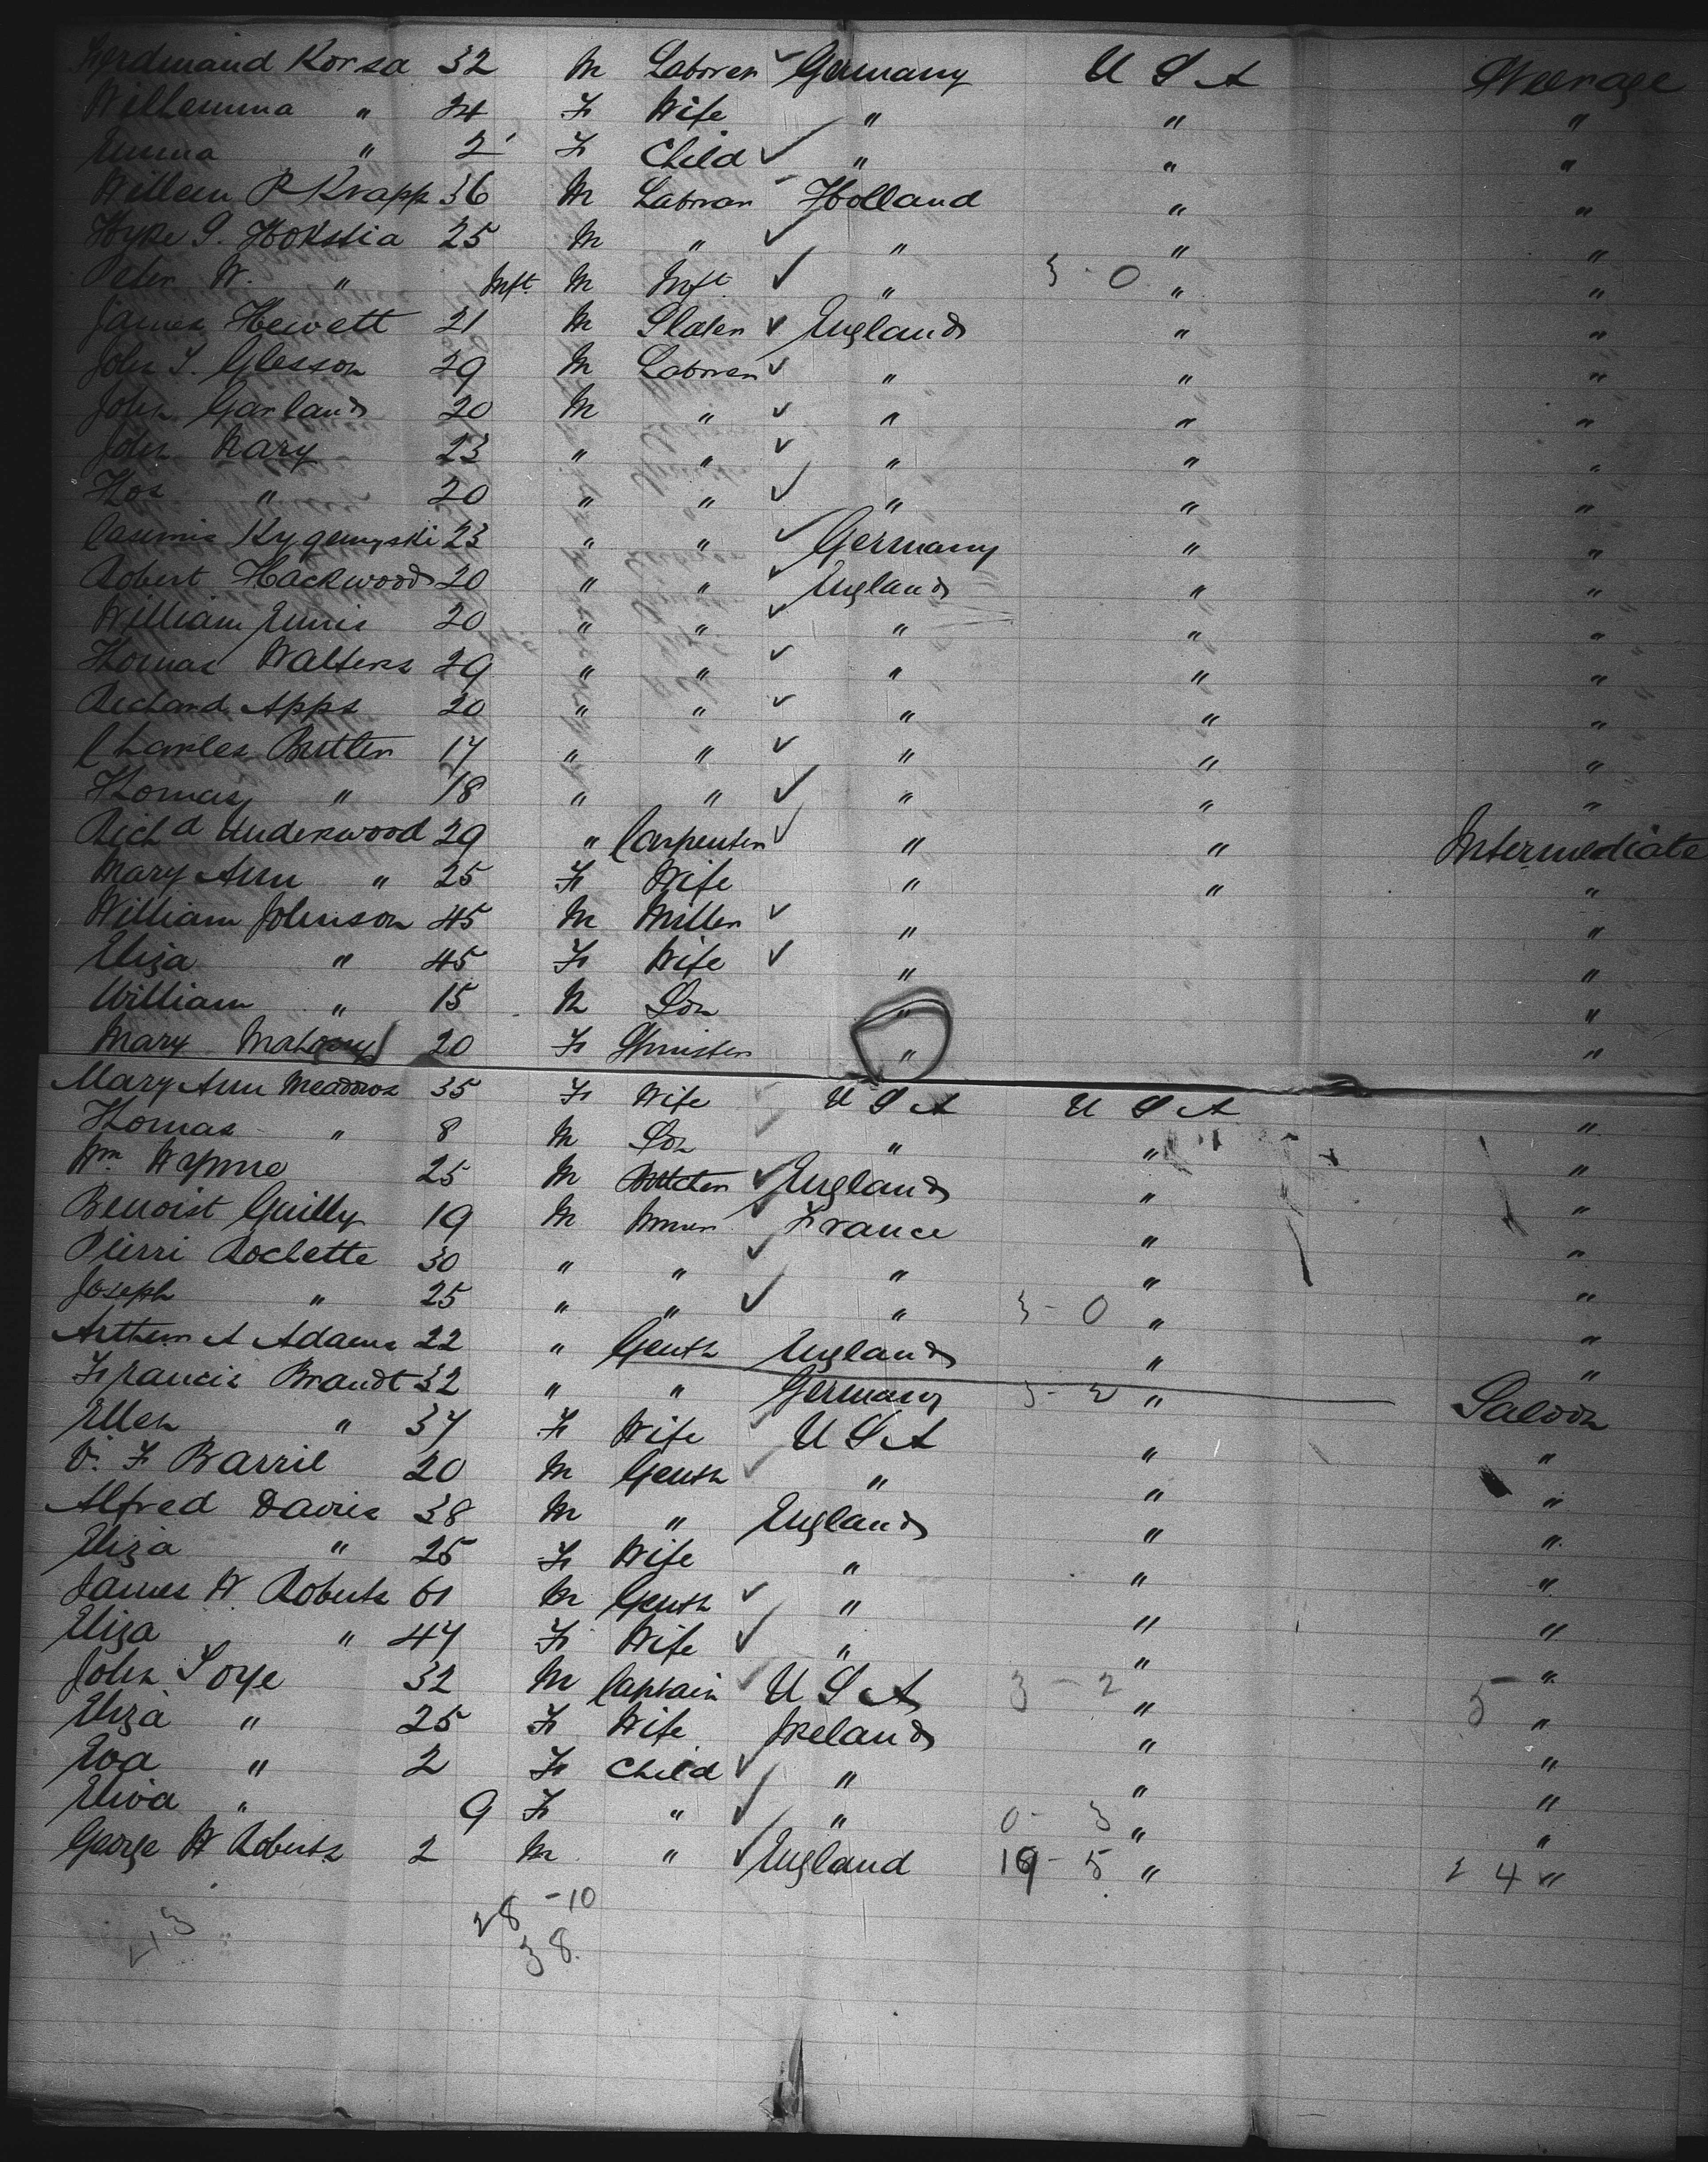 Ferdinand Korsa 32 M Laborer ✓ Germany U S A Steerage
Wilhemina " 24 F Wife " " "
Emma " 2 F Child ✓ " " "
Willem P Knapp 36 M Laborer Holland " "
Hyke G. Hokstia 25 M " ✓ " " "
Peter W. " Inft. M Inft ✓ " 3 - 0 " "
James Hewett 21 M Slater ✓ England " "
John T. Glesson 29 M Laborer ✓ " " "
John Garland 20 M " ✓ " " "
John Nary 23 " " ✓ " " "
Hos " 20 " " ✓ " " "
Casimis 23 " " ✓ Germany " "
Robert Hackwood 20 " " ✓ England " "
William Ennis 20 " " ✓ " " "
Thomas Walters 29 " " ✓ " " "
Richard Apps 20 " " ✓ " " "
Charles Butler 17 " " ✓ " " "
Thomas " 18 " " ✓ " " "
Richd Underwood 29 " Carpenter ✓ " " Intermediate
Mary Ann " 25 F Wife " " "
William Johnson 45 M Miller ✓ " "
Eliza " 45 F Wife ✓ " "
William " 15 M Son " "
Mary Mahoney 20 F Spinster " "
Mary Ann Meadows 35 F Wife ✓ U S A U S A
Thomas " 8 M Son ✓ " " "
Wm Wynne 25 M Butcher ✓ England " "
Benoist Guilly 19 M ✓ France " "
Pierri Roclette 30 " " ✓ " " "
Joseph " 25 " " ✓ " 3 - 0 " "
Arthur A Adams 22 " Gentn England " "
Francis Brandt 32 " " Germany 3 - 2 " Saloon
Ellen " 37 F Wife ✓ U S A " "
V. F Barril 20 M Gentn ✓ " " "
Alfred Davis 38 M " England " "
Eliza " 25 F Wife " " "
James W Roberts 61 M Gentn ✓ " " "
Eliza " 47 F Wife ✓ " " "
John Soye 32 M Captain ✓ U S A 3 - 2 " 5 "
Eliza " 25 F Wife Ireland " "
Eva " 2 F Child ✓ " " "
Eliva " 9 F " ✓ " 0 - 3 " "
George W Roberts 2 M " ✓ England 19 - 5 " 4 "
28 - 10
38.